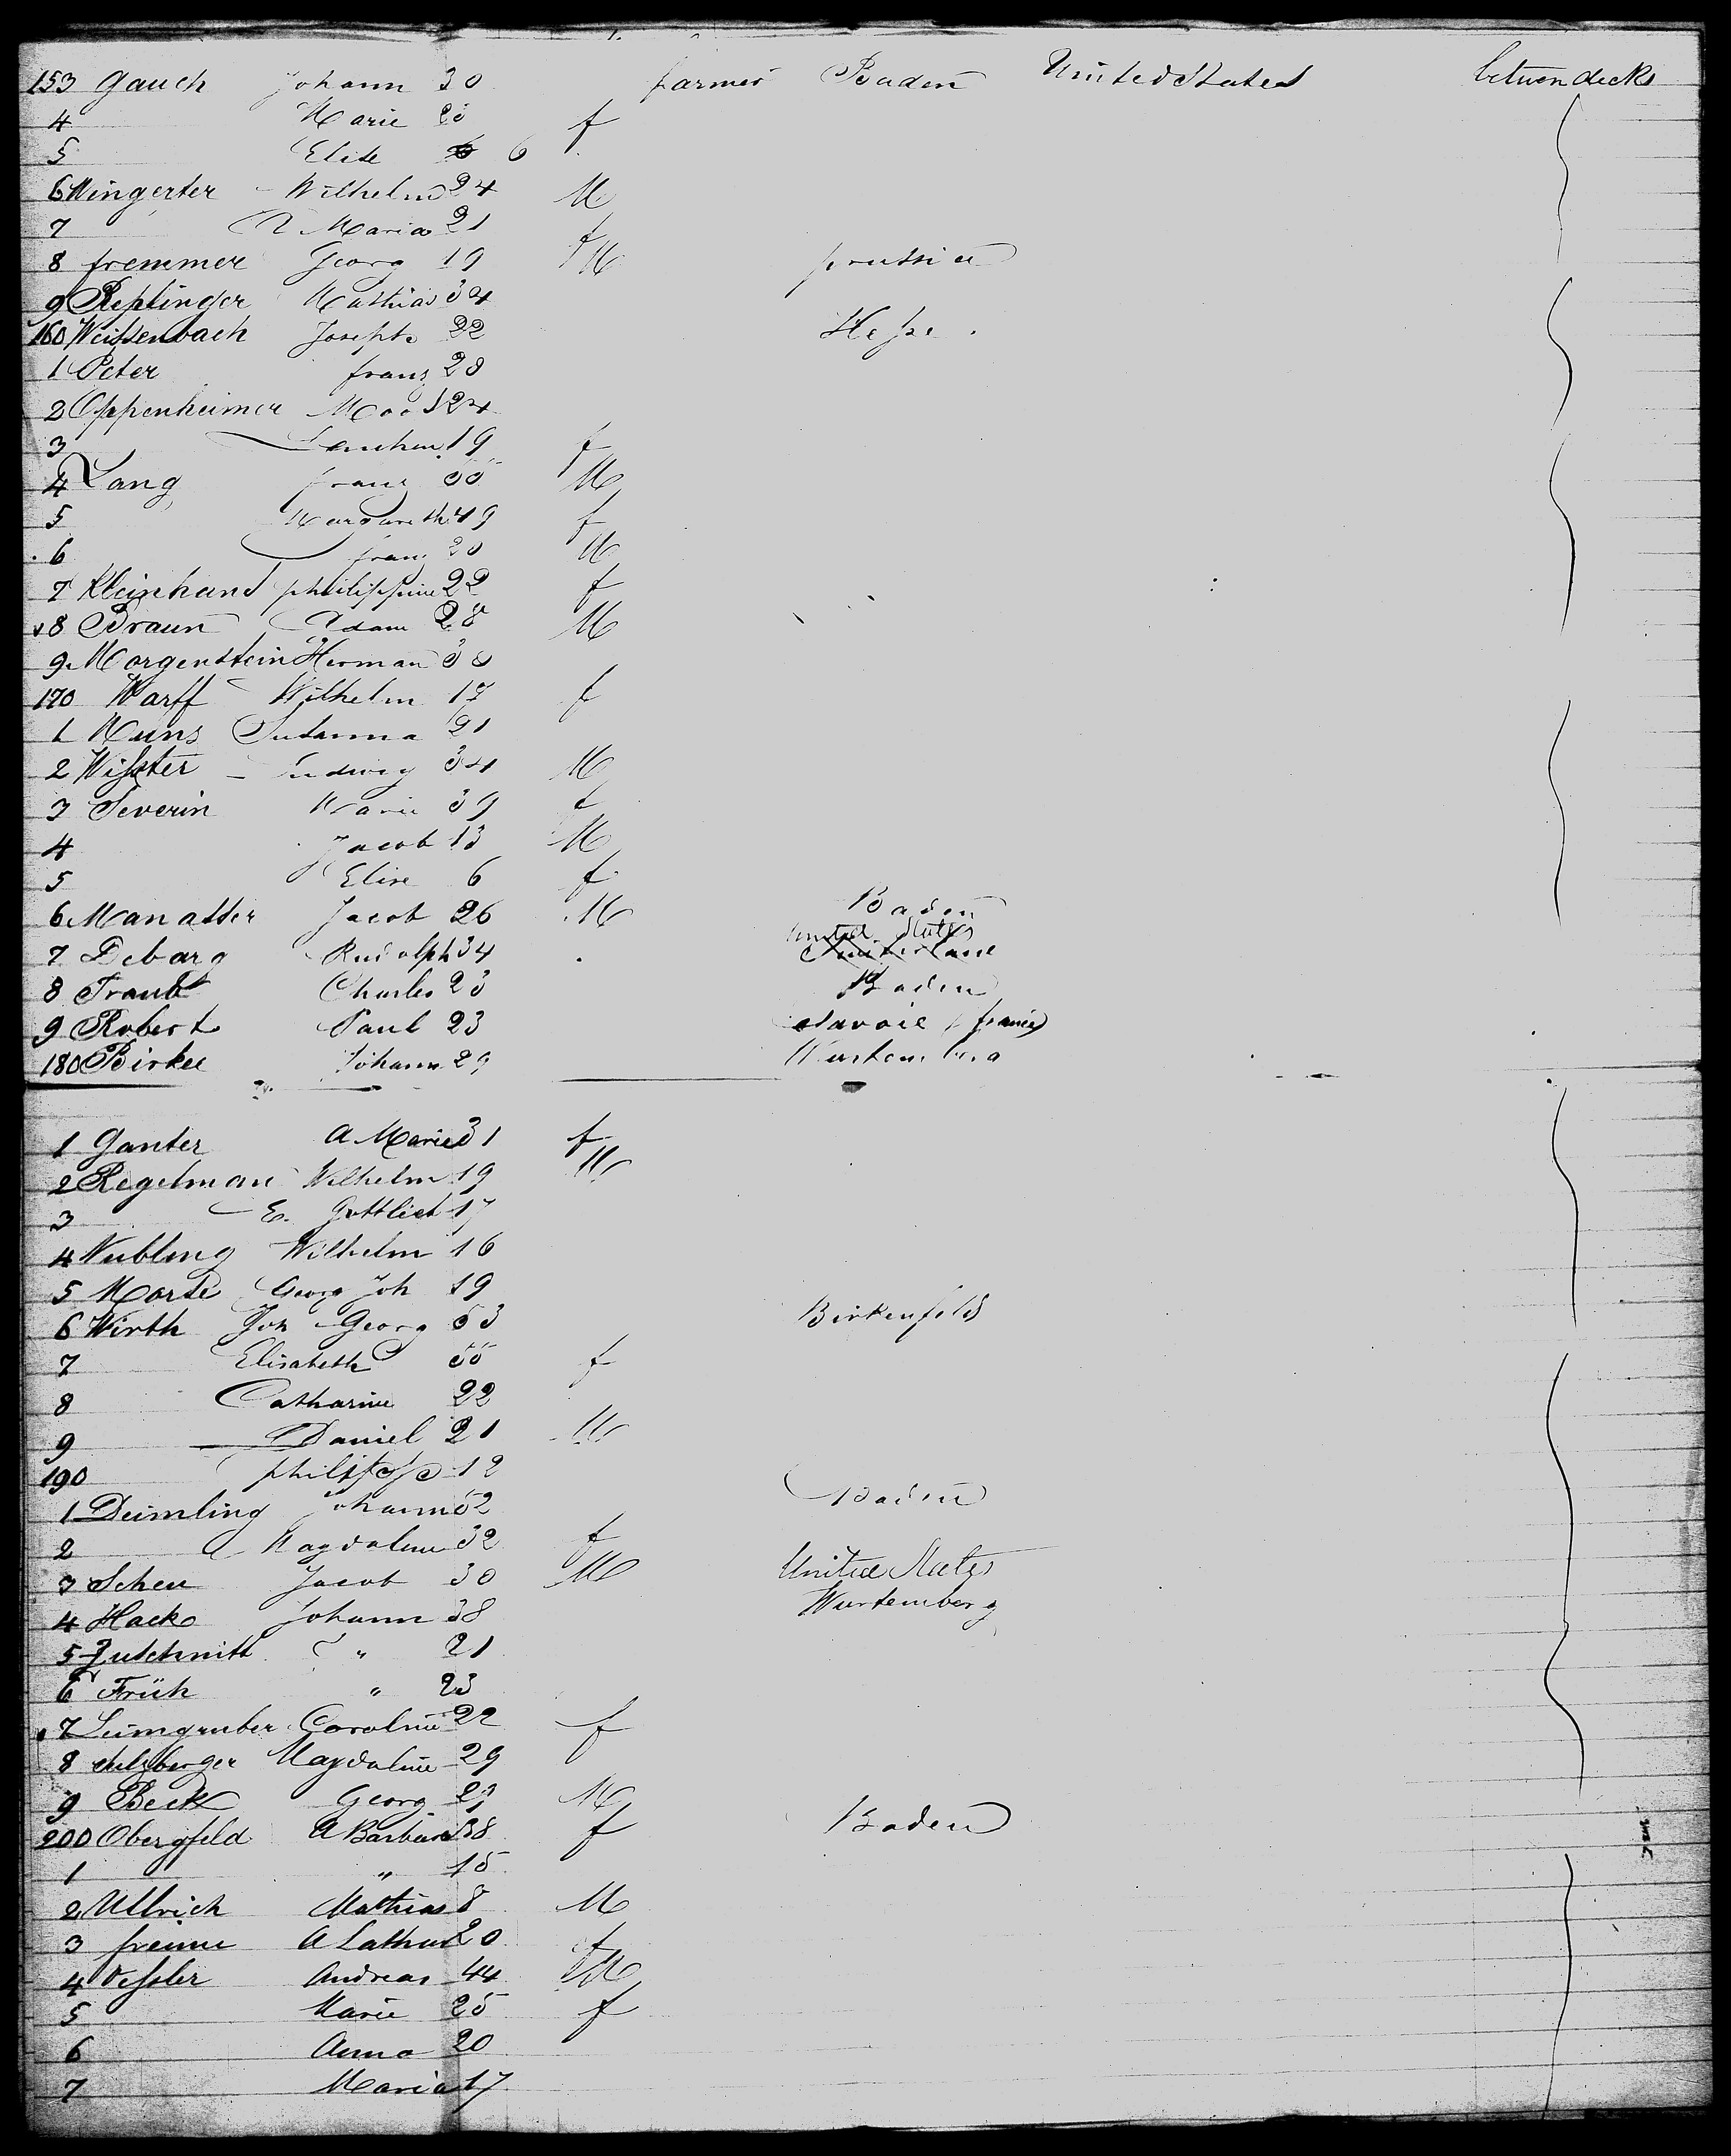 153 Gauch Johann 30 farmer Baden United States between decks
4 Marie 20 f
5 Elise 6
6 Wingerter Wilhelm 24 M
7 A Maria 21 f
8 fremmer Georg 19 M prussia
9 Replinger Mathias 34
160 Weissenbach Joseph 22 Hesse
1 Peter franz 28
2 Oppenheimer 24
3 19 f
4 Lang franz 55 M
5 Margareth 49 f
6 franz 20 M
7 Kleinhans philippine 22 f
8 Braun Adam 28 M
9 Morgenstein Herman 38
170 Warff Wilhelm 17 f
1 Susanna 21
2 Ludwig 34 M
3 Severin Marie 39 f
4 Jacob 13 M
5 Elise 6 f
6 Manasser Jacob 26 M Baden
United States
7 Debarg Rudolph 34 Switzerland
8 Traub Charles 23 Baden
9 Robert Paul 23 Savoie (france)
180 Birkee Johann 29 Wurtemberg
1 Ganter A Marie 31 f
2 Regelman Wilhelm 19 M
3 E. Gottlieb 17
4 Nubling Wilhelm 16
5 Georg Joh 19
6 Wirth Joh Georg 53 Birkenfeld
7 Elisabeth 55 f
8 Catharine 22
9 Daniel 21 M
190 philipp 12
1 Deimling Johann 52 Baden
2 Magdalene 32 f
3 Scheu Jacob 30 M United States
4 Hack Johann 38 Wurtemberg
5 Zutschnitt " 21
6 Früh " 23
7 Leimgruber Caroline 22 f
8 Sulzberger Magdaline 29
9 Beck Georg 29 M
200 Obergfeld A Barbara 38 f Baden
1 " 15
2 Ullrich Mathias 8 M
3 A 20 f
4 Andreas 44 M
5 Marie 25 f
6 Anna 20
7 Maria 17